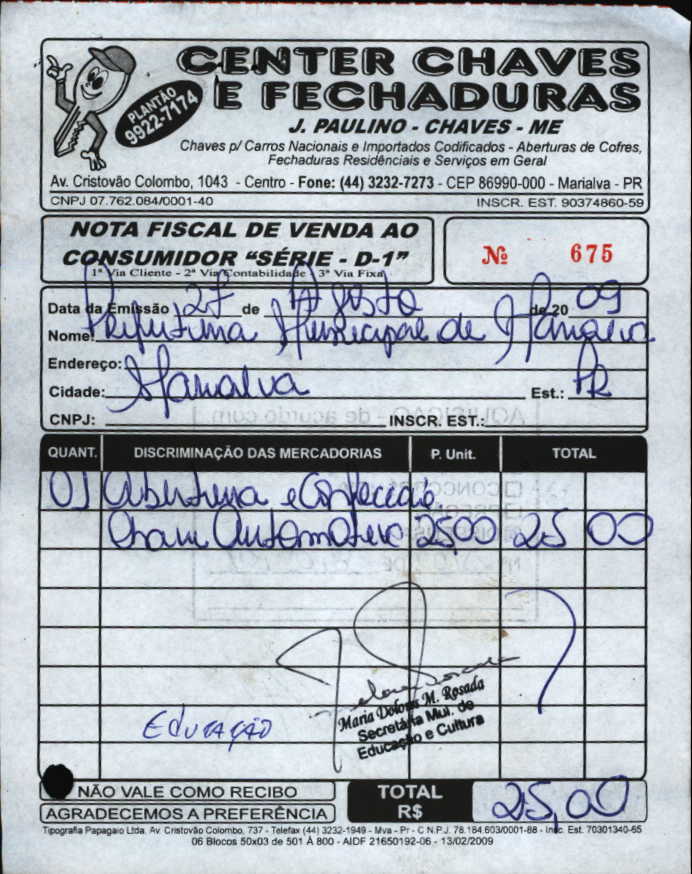 CENTER CHAVES
E FECHADURAS
PLANTÃO
9922-7174
J. PAULINO - CHAVES - ME
Chaves p/ Carros Nacionais e Importados Codificados - Aberturas de Cofres,
Fechaduras Residênciais e Serviços em Geral
Av. Cristovão Colombo, 1043 - Centro - Fone: (44) 3232-7273 - CEP 86990-000 - Marialva - PR
CNPJ 07.762.084/0001-40 INSCR. EST. 90374860-59
NOTA FISCAL DE VENDA AO
CONSUMIDOR "SÉRIE - D-1"
1ª Via Cliente - 2ª Via Contabilidade - 3ª Via Fixa
Nº 675
Data da Emissão 27 de Agosto de 20 09
Nome: Prefeitura Municipal de Marialva
Endereço:
Cidade: Marialva Est.: PR
CNPJ: INSCR. EST.:
QUANT. DISCRIMINAÇÃO DAS MERCADORIAS P. Unit. TOTAL
01 Abertura e Confecção
Chave Automotiva 25,00 25 00
Maria Dolores M. Rosada
Secretária Mul. de
Educação e Cultura
EDUCAÇÃO
NÃO VALE COMO RECIBO
AGRADECEMOS A PREFERÊNCIA
TOTAL
R$ 25,00
Tipografia Papagaio Ltda. Av. Cristovão Colombo, 737 - Telefax (44) 3232-1949 - Mva - Pr - C.N.P.J. 78.184.603/0001-88 - Insc. Est. 70301340-65
06 Blocos 50x03 de 501 À 800 - AIDF 21650192-06 - 13/02/2009